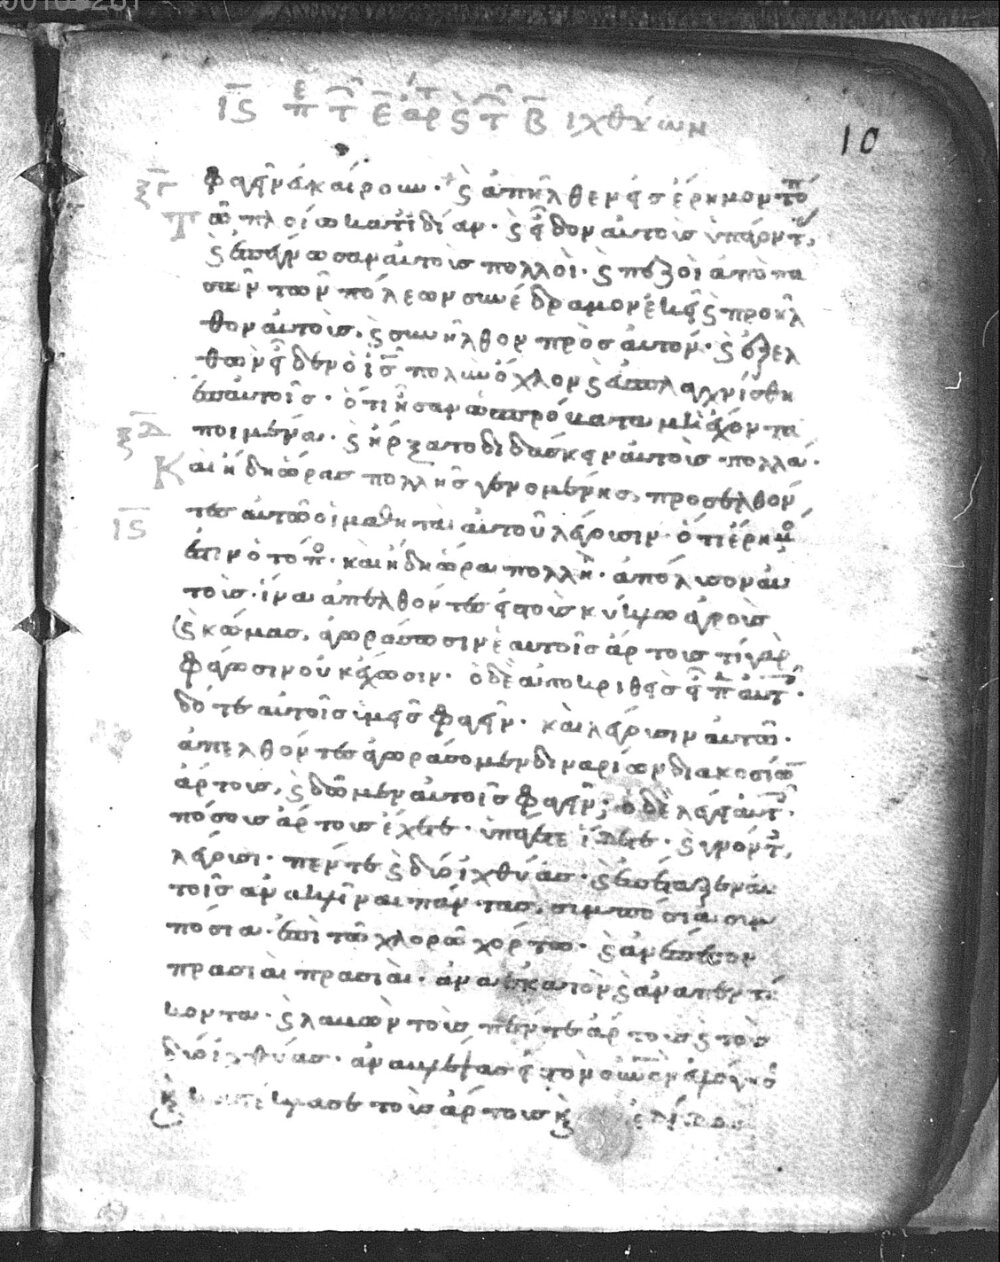 ις π τ ε αρ ς τ β ιχθύων
10
ξγ φαγεῖν ἀκαίρουν· ς ἀπῆλθεν εἰς ἔρημον το
Τῶ πλοίω κατιδίαν· ς εἶδον αὐτοὺς ὑπάγοντ,
ς ἐπέγνωσαν αὐτοὺς πολλοὶ· ς πεζοὶ ἀπὸ πα
σῶν τῶν πόλεων συνέδραμον ἐκεῖ ς προῆλ
θον αὐτοὺς, ς συνῆλθον πρὸς αὐτόν· ς ἐξελ
θὼν εἶδεν ὁ ις πολὺν ὄχλον ς ἐσπλαγχνίσθη
ἐπαὐτοῖς· ὅτι ἦσαν ὡς πρόβατα μὴ ἔχοντα
ξδ ποιμένα· ς ἤρξατο διδάσκειν αὐτοὺς πολλά·
Καὶ ἤδη ὥρας πολλῆς γενομένης, προσελθόν
ις τες αὐτῶ οἱ μαθηταὶ αὐτοῦ λέγουσιν· ὅτι ἔρημο
ἐστιν ὁ τόπο· καὶ ἤδη ὥρα πολλὴ· ἀπόλυσον αὐ
τοὺς· ἵνα ἀπελθόντες εἰς τοὺς κύκλω ἀγροὺς
ς κώμας, ἀγοράσωσιν ἑαυτοῖς ἄρτους τί γὰρ
φάγωσιν οὐκ ἔχουσιν· ὁ δὲ ἀποκριθεὶς εἶπ αὐτ·
δότε αὐτοῖς ὑμεῖς φαγεῖν· καὶ λέγουσιν αὐτῶ·
ἀπελθόντες ἀγοράσομεν διναρίων διακοσίω
ἄρτους, ς δῶμεν αὐτοῖς φαγεῖν; ὁ δὲ λέγει αὐτ·
πόσους ἄρτους ἔχετε· ὑπάγετε ἴδετε· ς γνόντ,
λέγουσι· πέντε ς δύο ἰχθύας· ς ἐπέταξεν αὐ
τοῖς ἀνακλῖναι πάντας, συμπόσια συμ
πόσια· ἐπὶ τῶ χλορῶ χόρτω· ς ἀνέπεσον
πρασιαὶ πρασιαὶ· ἀνὰ ἑκατὸν ς ἀνὰ πεντί
κοντα· ς λαβὼν τοὺς πέντε ἄρτους ς τοὺς
δύο ἰχθύας· ἀναβλέψας εἰς τὸν οὐνὸν εὐλόγησ
κ κατέκλασε τοὺς ἄρτους κ ἐδίδου